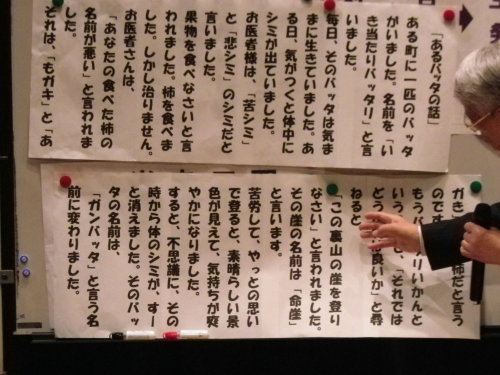 「あるバッタの話」
ある町に一匹のバッタ
がいました。名前を、「い
き当たりバッタリ」と言
いました。
毎日、そのバッタは気ま
まに生きていました。あ
る日、気がつくと体中に
シミが出ていました。
お医者様は、「苦シミ」
と「悲シミ」のシミだと
言いました。
果物を食べなさいと言
われました。柿を食べま
した。しかし治りません。
お医者さんは、
「あなたの食べた柿の
名前が悪い」と言われま
した。
それは、「もガキ」と「あ
がき
柿だと言う
のです
もう
りいかんと
いう
、「それでは
どう
良いか」と尋
ねると
「この裏山の崖を登り
なさい」と言われました。
その崖の名前は「命崖」
と言います。
苦労して、やっとの思い
で登ると、素晴らしい景
色が見えて、気持ちが爽
やかになりました。
すると、不思議に、その
時から体のシミが、すー
と消えました。そのバッ
タの名前は、
「ガンバッタ」と言う名
前に変わりました。